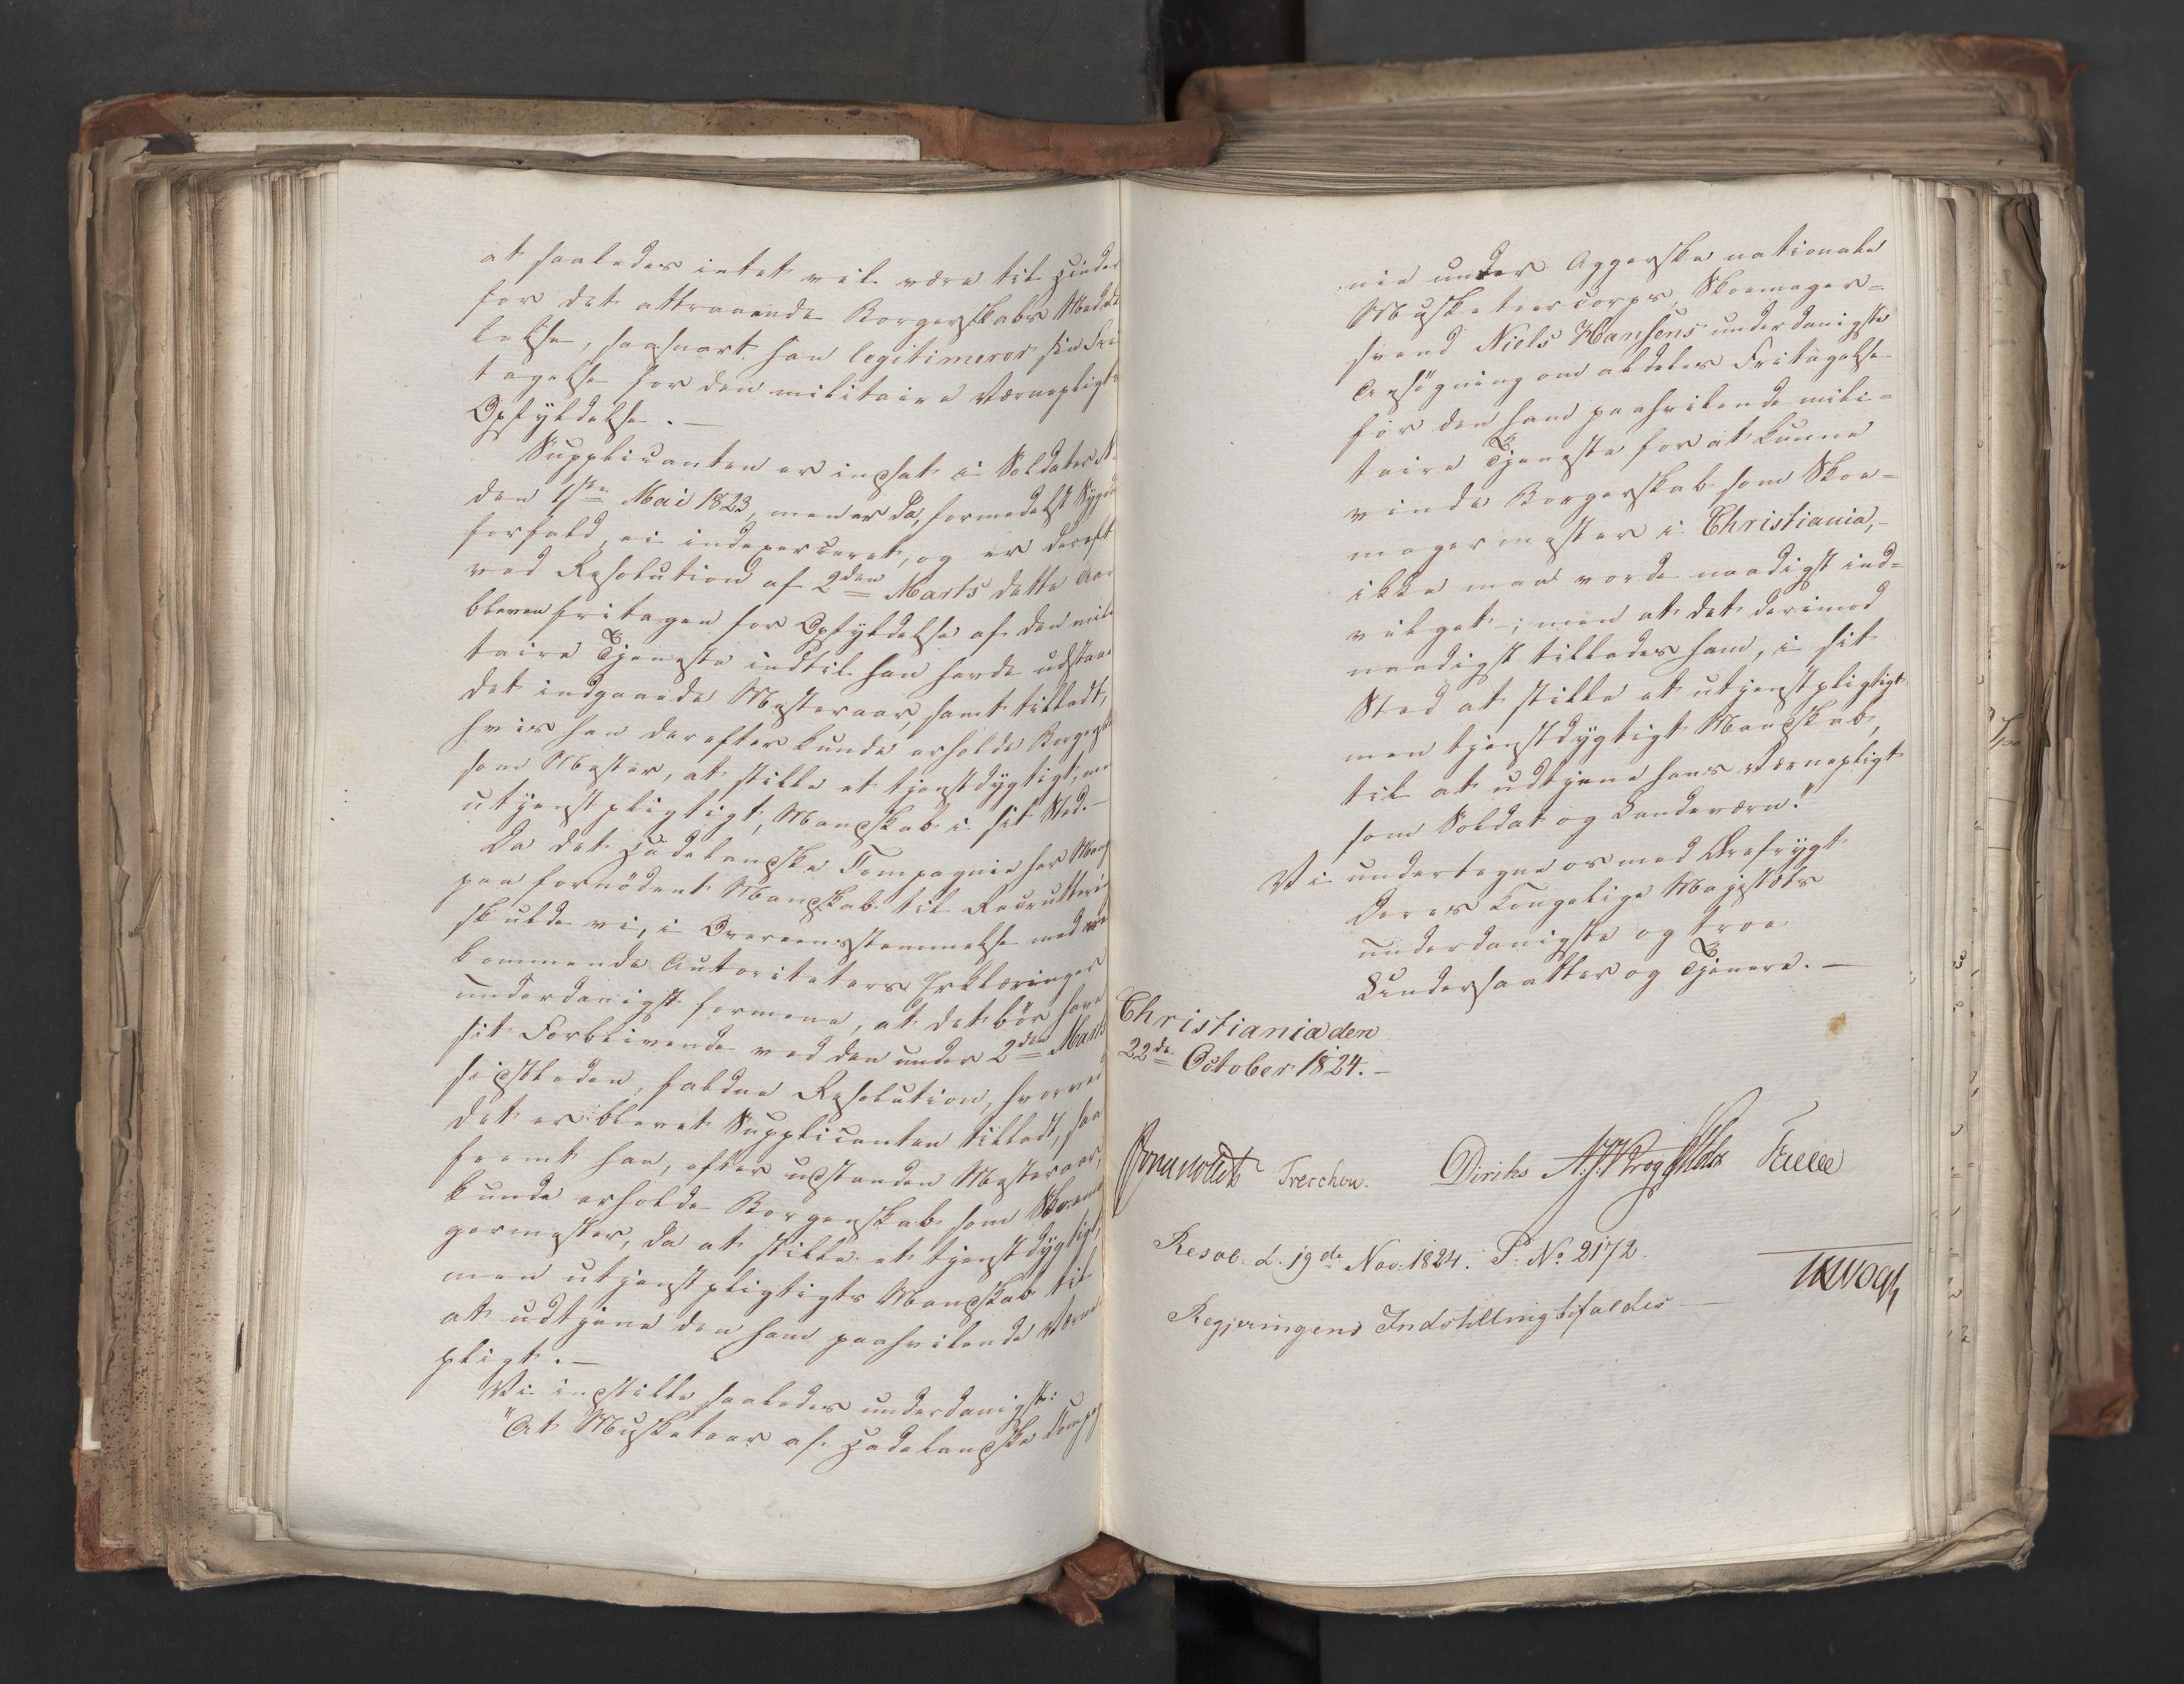 at saaledes intet vil være til Hinder
for det attraaende Borgerskabs Medde
lelse, saasnart han legitimerer sin Fri
tagelse for den militaire Værnepligts
Opfyldelse. —
Supplicanten er indsat i Soldater N
den 1ste Mai 1823, men er da, formedelst Sygdo
forfald, ei indexerceret, og er dereft
ved Resolution af 2den Marts dette Aar
bleven fritagen for Opfyldelse af den mili
taire Tjeneste indtil han havde udstaae
det indgaaende Mesteraar, samt tilladt,
hvis han derefter kunde erholde Borgersk
som Mester, at stille et tjenstdygtigt, me
utjenstpligtigt, Mandskab i sit Sted. —
Da det Hadelandske Compagnie har Mang
paa fornödent Mandskab til Recrutteri
skulde vi, i Overeensstemmelse med ved
kommende Autoriteters Erklæringer
underdanigst formene, at det bör have
sit Forblivende ved den under 2den Marts
sidstleden, faldne Resolution, hvorved
det er blevet Supplicanten tilladt, saa
fremt han, efter udstanden Mesteraar,
kunde erholde Borgerskab som Skoema
germester, da at stille et tjenstdygtigt,
men utjenstpligtigts Mandskab til
at udtjene den ham paahvilende Værne
pligt. —
Vi indstille saaledes underdanigst:
"At Musketeer af Hadelandske Compag
nie under Aggerske nationale
Musketeercorps, Skoemager=
svend Niels Hansens underdanigste
Ansögning om aldeles Fritagelse
for den ham paahvilende mili=
taire Tjeneste for at kunne
vinde Borgerskab som Skoe=
magermester i Christiania,
ikke maa vorde naadigst ind=
vilget; men at det derimod
naadigst tillades ham, i sit
Sted at stille et utjenstpligtigt
men tjenstdygtigt Mandskab,
til at udtjene hans Værnepligt
som Soldat og Landeværn."
Vi undertegne os med Ærefrygt
Deres Kongelige Majestæts
underdanigste og troe
Undersaatter og Tjenere. —
Christiania den
22de October 1824. —
Jonas Collett Treschow. Diriks A. J. Krog Holst Fasting
Resol. d. 19de Nov. 1824. P. No 2172.
Regjeringens Indstilling bifaldes —